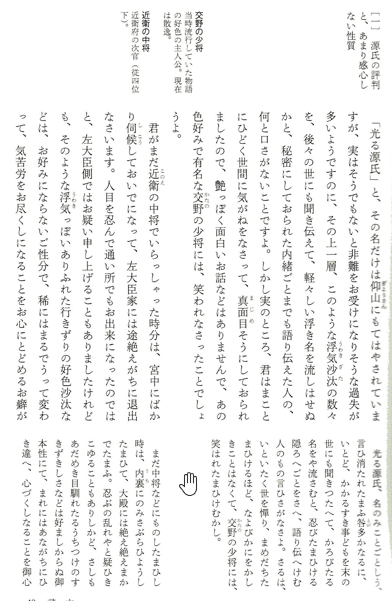 ［一］ 源氏の評判
と、あまり感心し
ない性質
交野の少将
当時流行していた物語
の好色の主人公。現在
は散逸。
近衛の中将
近衛府の次官（従四位
下）。
「光る源氏」と、その名だけは仰山にもてはやされていま
すが、実はそうでもないと非難をお受けになりそうな過失が
多いようですのに、その上一層、このような浮気沙汰の数々
を、後々の世にも聞き伝えて、軽々しい浮き名を流しはせぬ
かと、秘密にしておられた内緒ごとまでも語り伝えた人の、
何と口さがないことですよ。しかし実のところ、君はまこと
にひどく世間に気がねをなさって、真面目そうにしておられ
ましたので、艶っぽく面白いお話などはありませんで、あの
色好みで有名な交野の少将には、笑われなさったことでしょ
うよ。
君がまだ近衛の中将でいらっしゃった時分は、宮中にばか
り伺候しておいでになって、左大臣家には途絶えがちに退出
なさいます。人目を忍んで通い所でもお出来になったのでは
と、左大臣側ではお疑い申し上げることもありましたけれど
も、そのような浮気っぽいありふれた行きずりの好色沙汰な
どは、お好みにならないご性分で、稀にはまるでうって変わ
って、気苦労をお尽くしになることをお心にとどめるお癖が
光る源氏、名のみことごとしう、
言ひ消たれたまふ咎多かなるに、
いとど、かかるすき事どもを末の
世にも聞きつたへて、かろびたる
名をや流さむと、忍びたまひける
隠ろへごとをさへ、語り伝へけむ
人のもの言ひさがなさよ。さるは、
いといたく世を憚り、まめだちた
まひけるほど、なよびかにをかし
きことはなくて、交野の少将には、
笑はれたまひけむかし。
まだ中将などにものしたまひし
時は、内裏にのみさぶらひようし
たまひて、大殿には絶え絶えまか
でたまふ。忍ぶの乱れやと疑ひき
こゆることもありしかど、さしも
あだめき目馴れたるうちつけのす
きずきしさなどは好ましからぬ御
本性にて、まれにはあながちにひ
き違へ、心づくしなることを御心